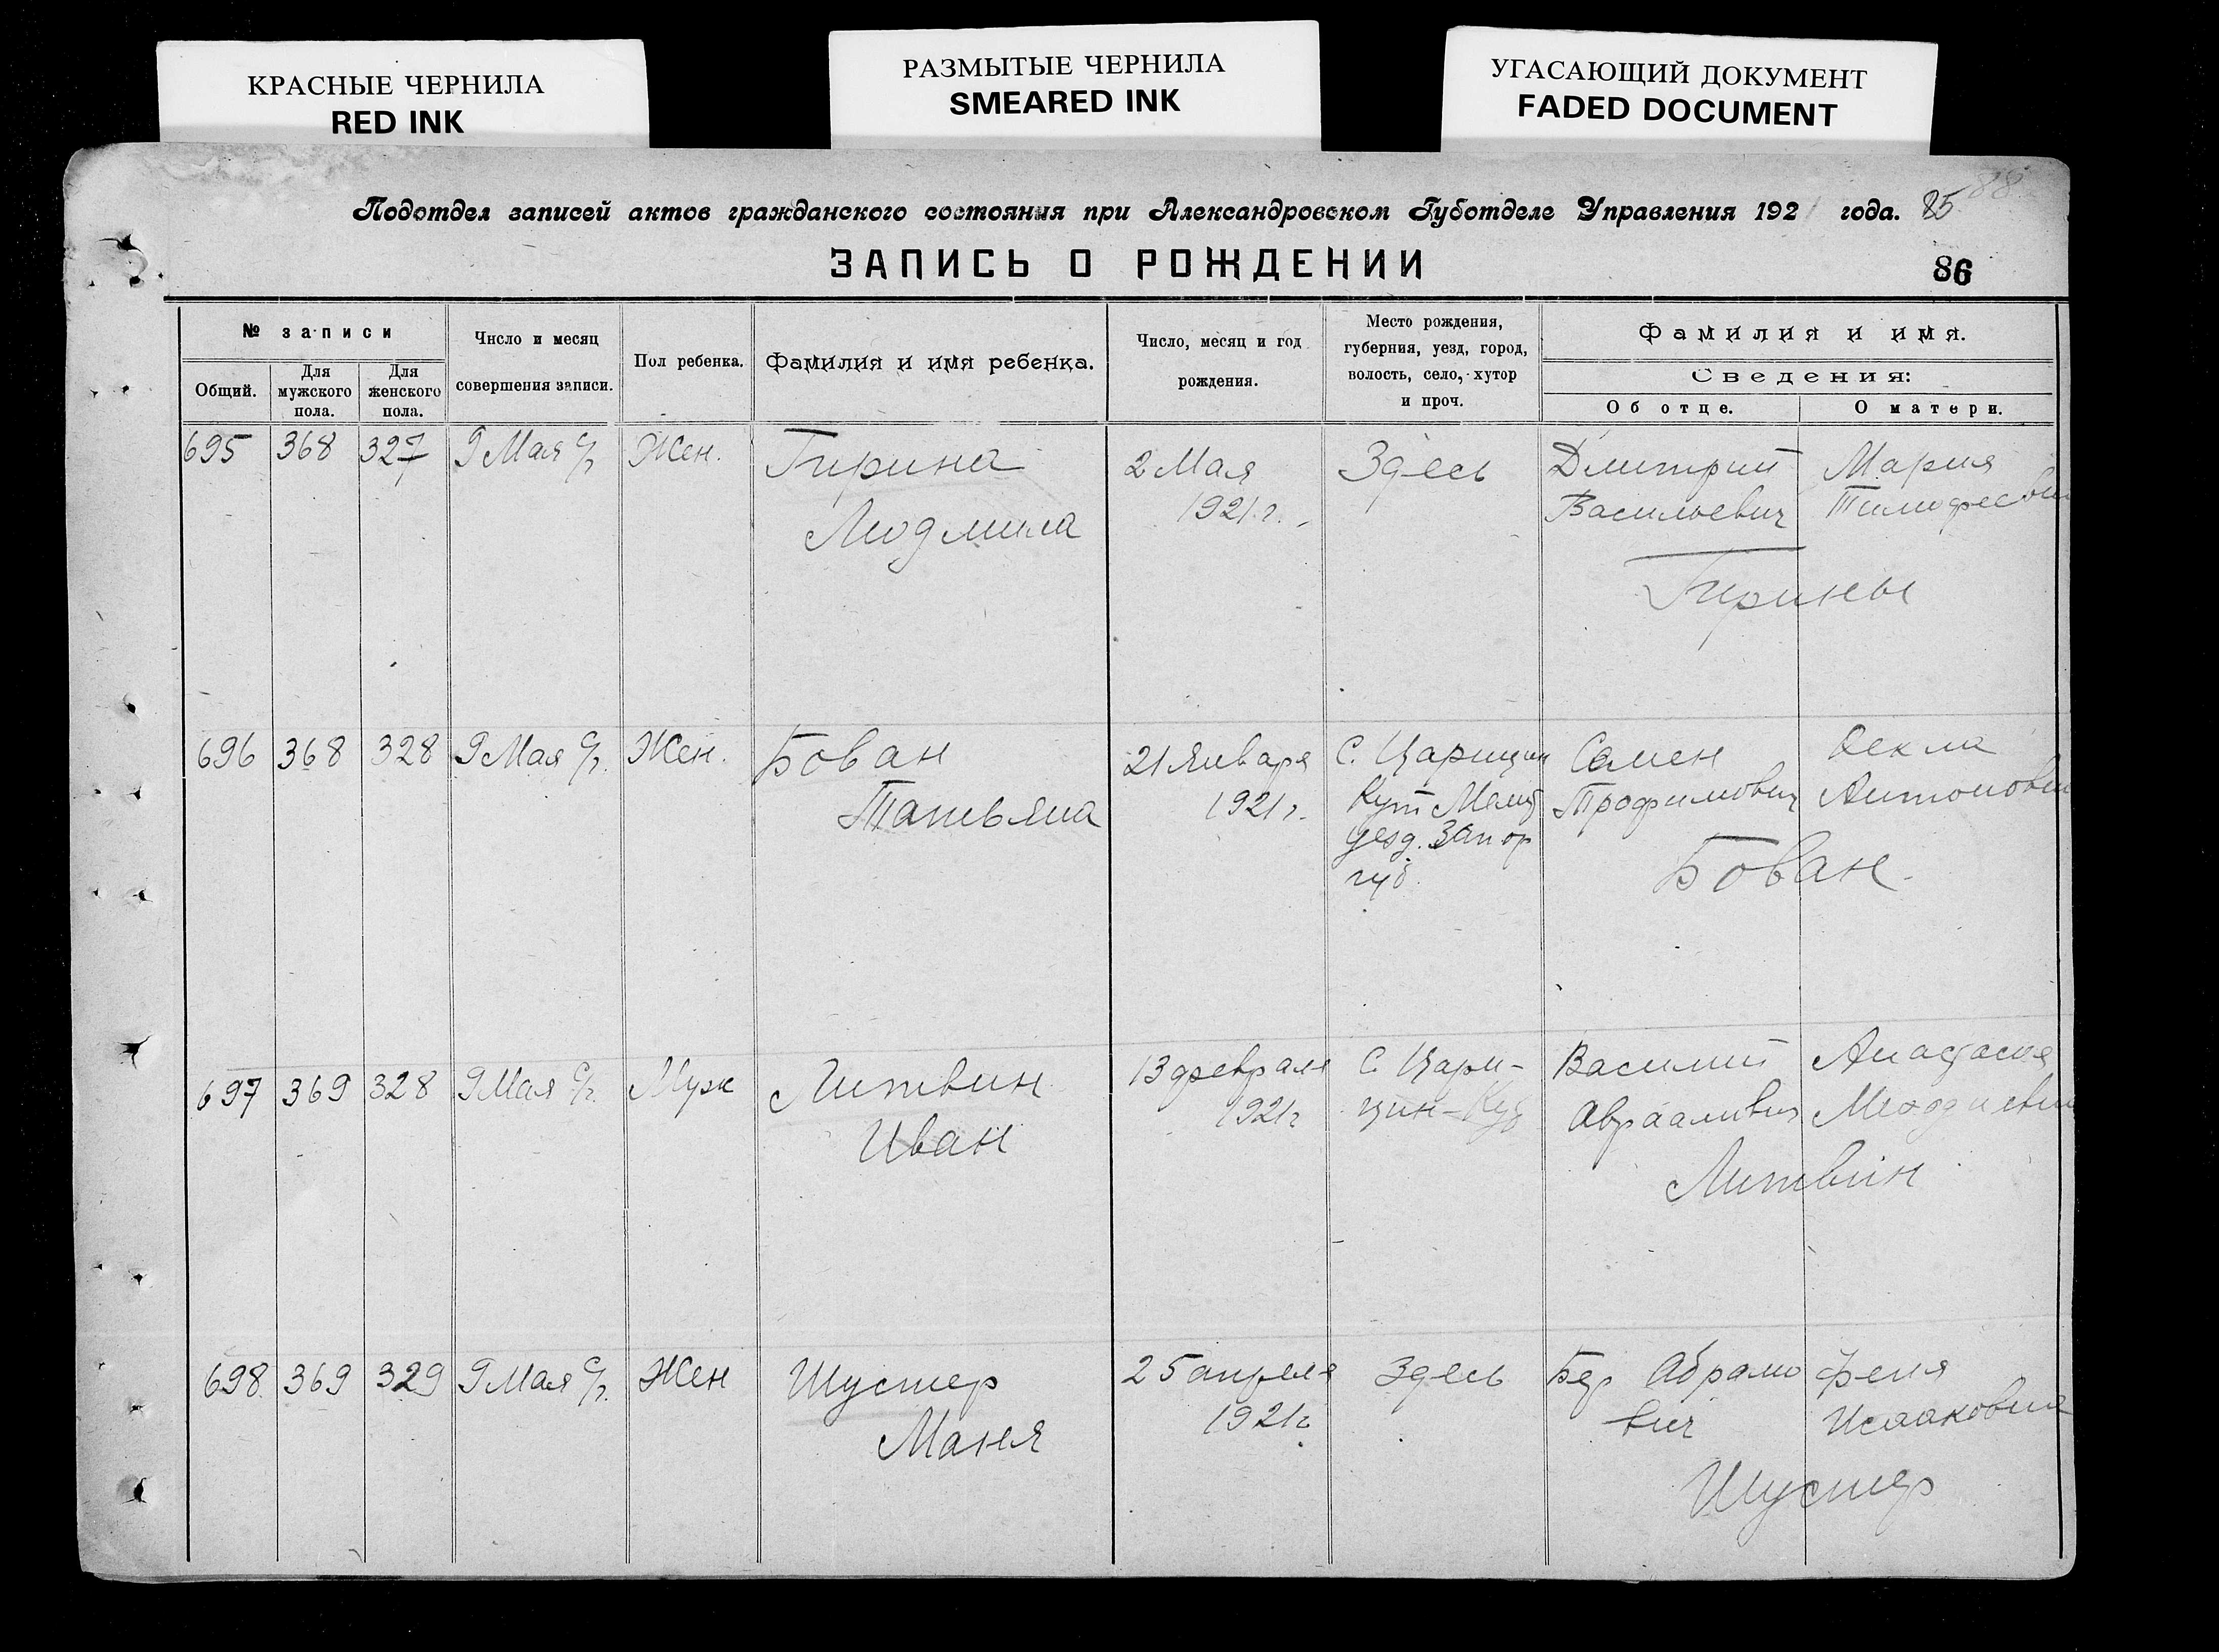 КРАСНЫЕ ЧЕРНИЛА
RED INK
РАЗМЫТЫЕ ЧЕРНИЛА
SMEARED INK
УГАСАЮЩИЙ ДОКУМЕНТ
FADED DOCUMENT
Подотдел записей актов гражданского состояния при Александровском Губотделе Управления 192 года. 85 88
ЗАПИСЬ О РОЖДЕНИИ
86
№ записи
Общий.
Для мужского пола.
Для женского пола.
Число и месяц совершения записи.
Пол ребенка.
Фамилия и имя ребенка.
Число, месяц и год рождения.
Место рождения, губерния, уезд, город, волость, село, хутор и проч.
Фамилия и имя.
Сведения:
Об отце.
О матери.
695 368 327 9 Мая с/г Жен. Гирина 2 Мая Здесь Дмитрий Мария
Людмила 1921.г. Васильевич Тимофеевн
Гирины
696 368 328 9 Мая с/г. Жен. Бован 21 Января С. Царицин Семен Фекла
Татьяна 1921г. Кут Мелит Трофимович Антоновн
уезд. Запор
губ.
Бован
697 369 328 9 Мая с/г. Муж Литвин 13 февраля С. Цари- Василий Анастасия
Иван 1921г цин-Кут Авраамович
Литвин
698. 369 329 9 Мая с/г. Жен Шустер 25 апреля Здесь Бер Абрамо Феня
Маня 1921г. вич Исааковна
Шустер